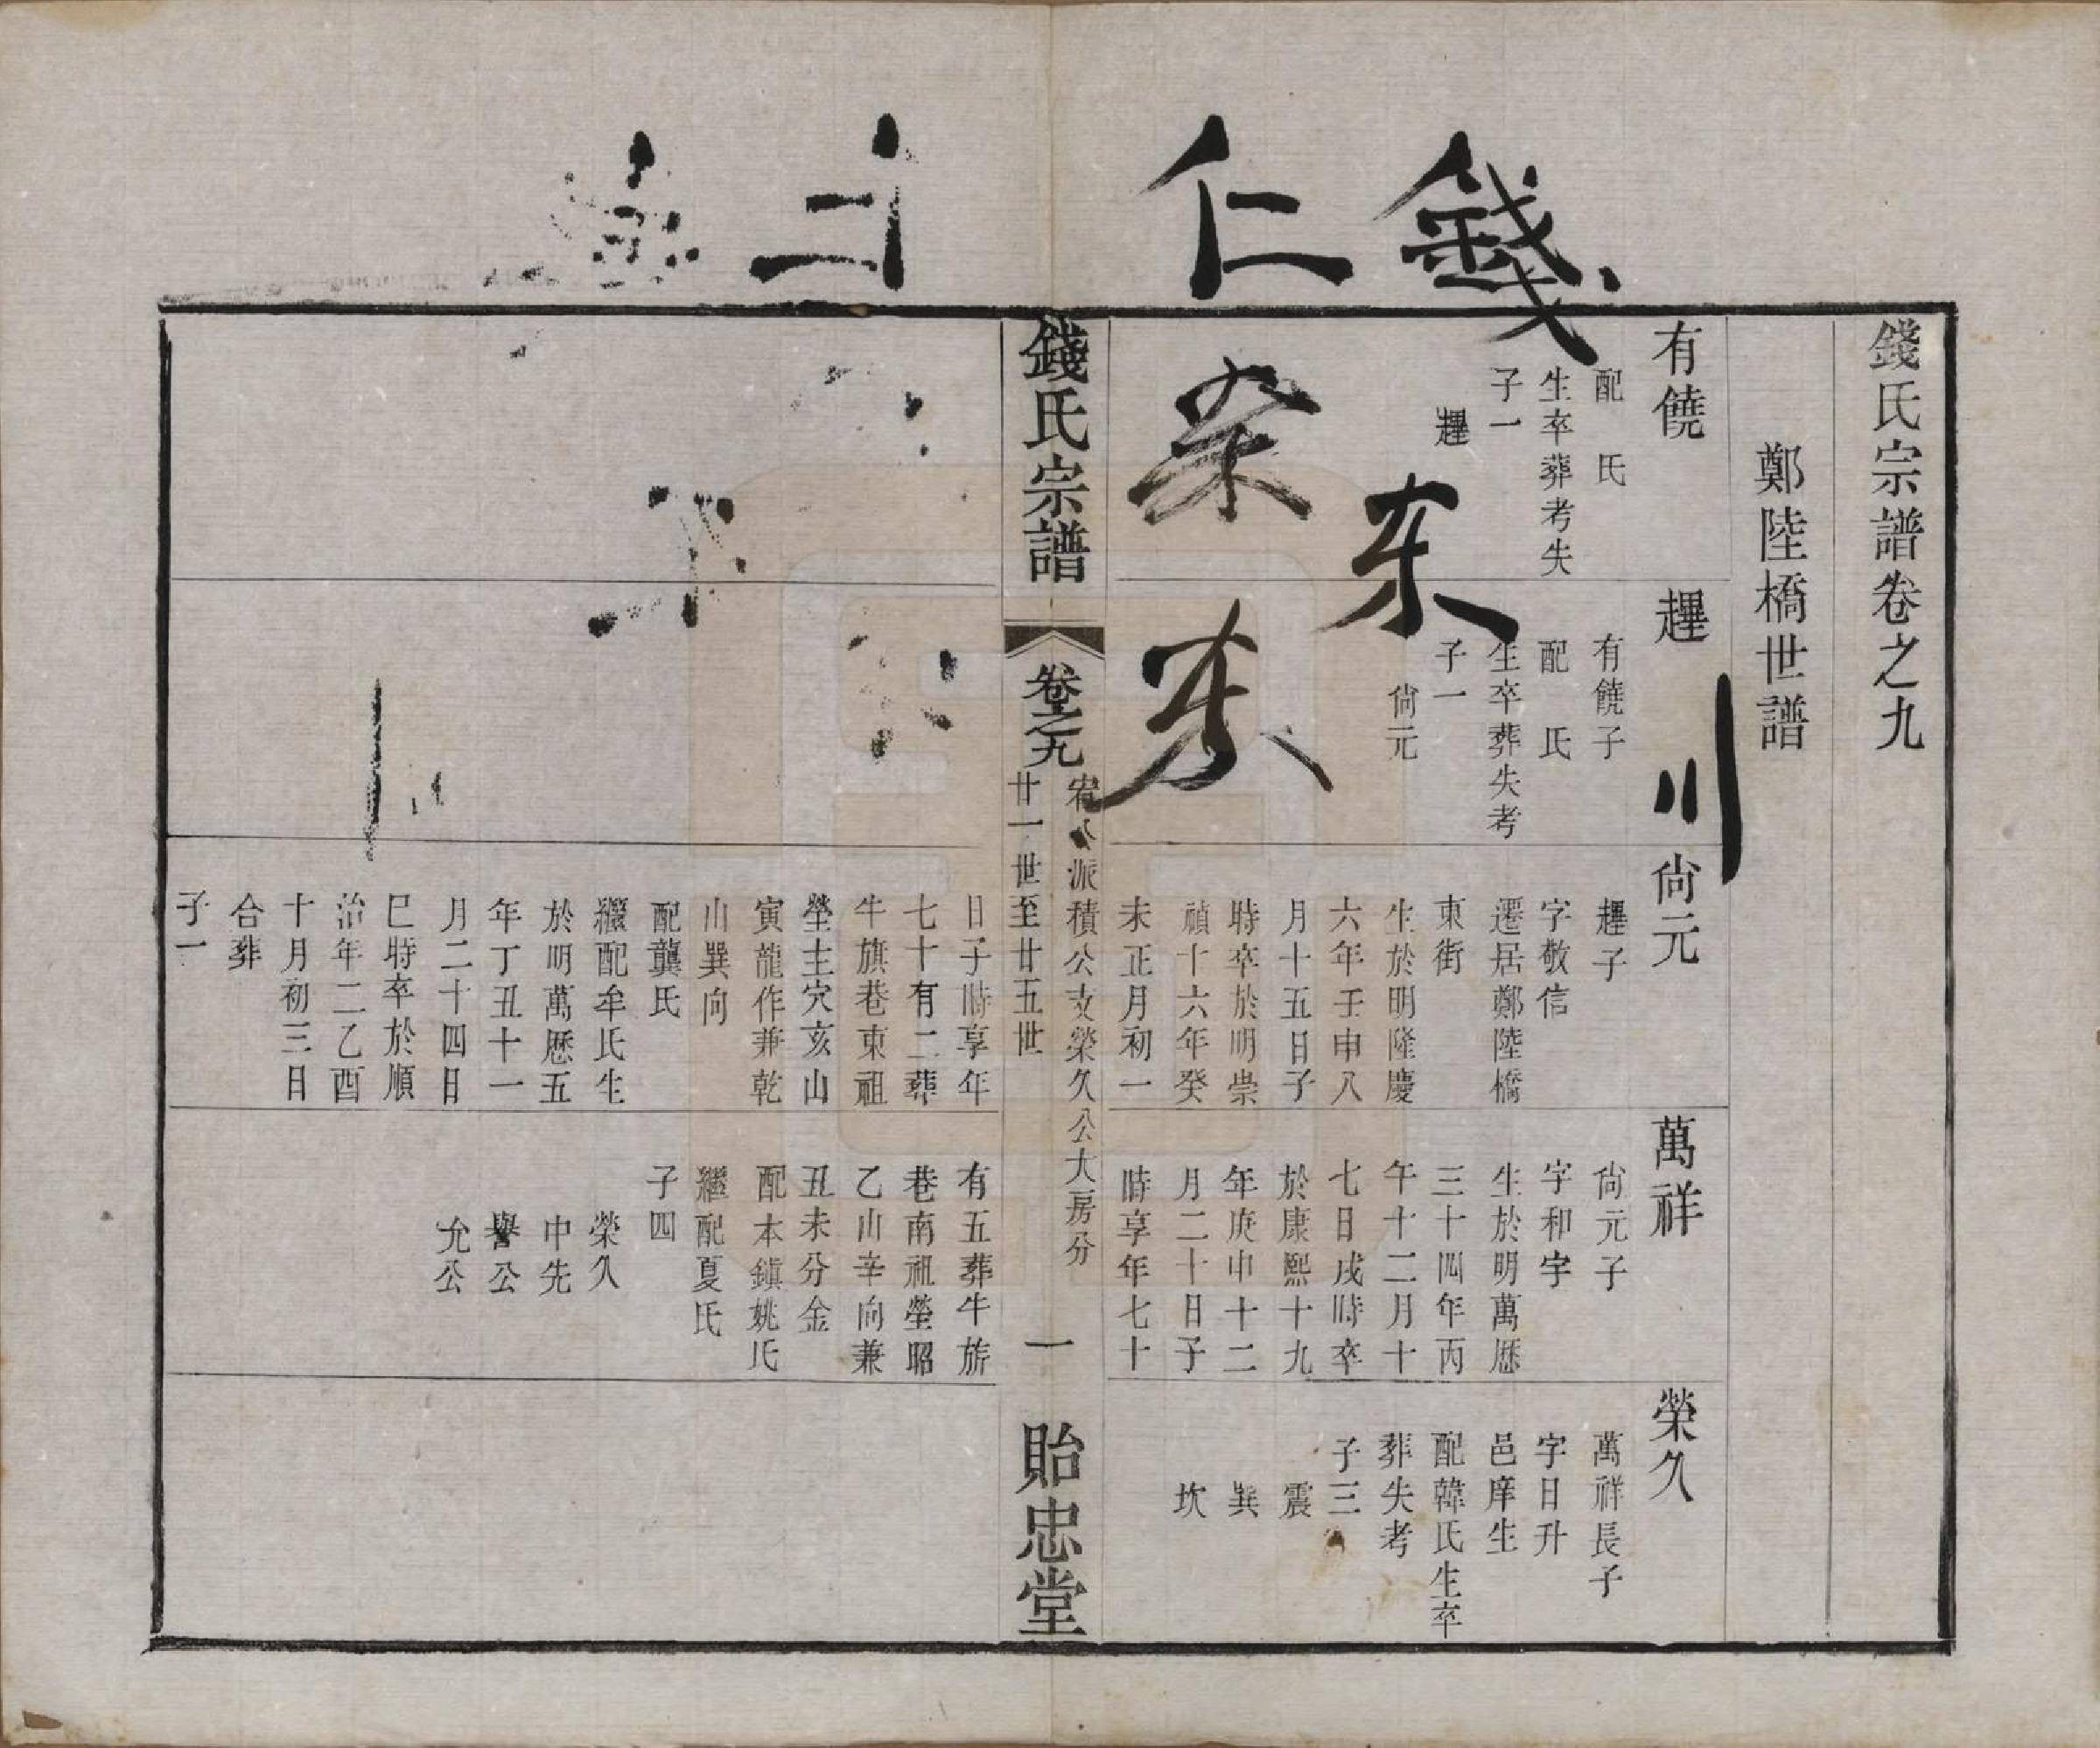 錢氏宗譜卷之九
鄭陸橋世譜
有饒
配 氏
生卒葬考失
子一
趩
趩
有饒子
配 氏
生卒葬失考
子一
尙元
尙元
趩子
字敬信
遷居鄭陸橋
東街
生於明隆慶
六年壬申八
月十五日子
時卒於明崇
禎十六年癸
未正月初一
日子時享年
七十有二葬
牛旗巷東祖
塋主穴亥山
寅龍作兼乾
山巽向
配龔氏
繼配牟氏生
於明萬歷五
年丁丑十一
月二十四日
巳時卒於順
治年二乙酉
十月初三日
合葬
子一
萬祥
尙元子
字和宇
生於明萬歷
三十四年丙
午十二月十
七日戌時卒
於康熙十九
年庚申十二
月二十日子
時享年七十
有五葬牛旂
巷南祖塋昭
乙山辛向兼
丑未分金
配本鎭姚氏
繼配夏氏
子四
榮久
中先
譽公
允公
榮久
萬祥長子
字日升
邑庠生
配韓氏生卒
葬失考
子三
震
巽
坎
錢氏宗譜
卷之九
派積公支榮久公大房分
廿一世至廿五世
一
貽忠堂
錢
仁
东
川